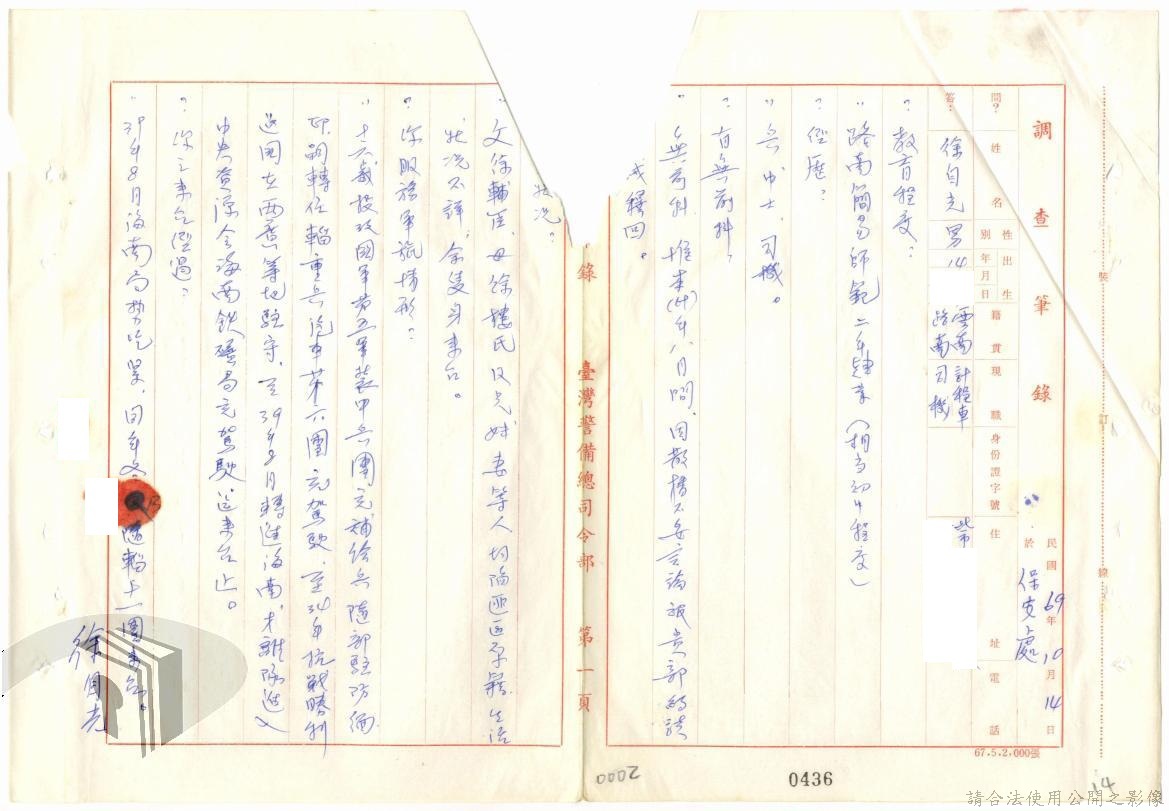 調查筆錄
民國69年10月14日
於保安處
問? 姓名 性別 出生年月日 籍貫 現職 身份證字號 住址 電話
答: 徐自先 男 14 雲南路南 計程車司機
? 教育程度?
〃路南簡易師範二年肄業(相當初中程度)
? 經歷?
〃兵、中士、司機。
? 有無前科?
〃無前科,惟本(69)年八月間,因散播不妥言論被貴部約談
或釋回
狀況?
〃父徐輔臣、母徐樓氏及兄妹妻等人均陷匪區原籍,生活
狀況不詳,余隻身來台。
? 你服務軍旅情形?
〃十六歲投效國軍第五軍裝甲兵團充補給兵隨部駐防緬
印,嗣轉任輜重兵汽車第六團充駕駛,至34年抗戰勝利
返國在西 等地駐守,至39年2月轉進海南,才離隊進入
中央資源會海南鐵礦局充駕駛迄來台止。
? 你之來台經過?
〃39年8月海南局勢吃緊,同年 隨輜十一團來台。
徐自先
臺灣警備總司令部
第一頁
67.5.2,000張
裝訂線
0436
2000
14
請合法使用公開之影像